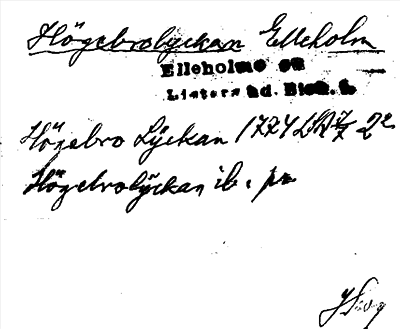 Högebrolyckan Elleholm
Elleholms sn
Listers hd. Blek. l.
Högebro Lyckan 1774 LSA 7/7 2e
Högebrolyckan ib.